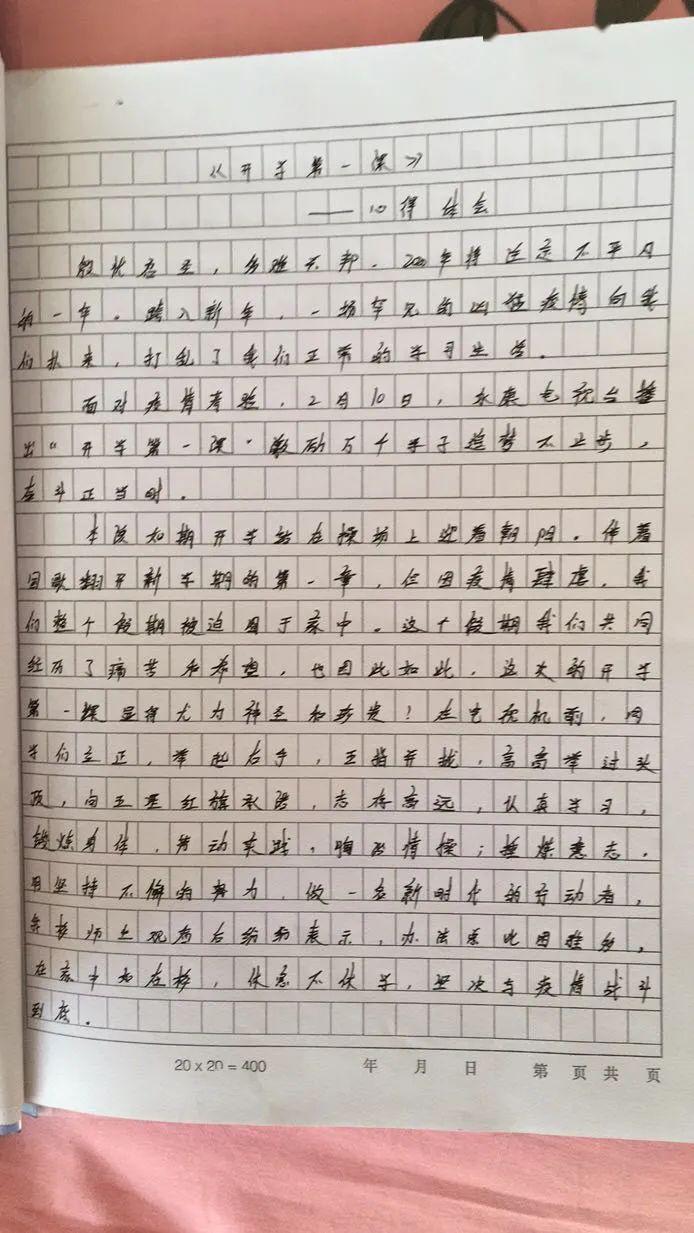 《开学第一课》
——心得体会
殷忧启圣，多难兴邦。2020年将注定不平凡
的一年。踏入新年，一场罕见的凶猛疫情向我
们扑来，打乱了我们正常的学习生活。
面对疫情考验，2月10日，永康电视台播
出“开学第一课”激励万千学子追梦不止步，
奋斗正当时。
本该如期开学站在操场上迎着朝阳。伴着
国歌翻开新学期的第一章，但因疫情肆虐，我
们整个假期被迫困于家中。这个假期我们共同
经历了痛苦和希望，也因此如此，这次的开学
第一课显得尤为神圣和珍贵！在电视机前，同
学们立正，举起右手，五指并拢，高高举过头
顶，向五星红旗承诺，志存高远，认真学习，
锻炼身体，劳动实践，陶冶情操；锤炼意志，
用坚持不懈的努力，做一名新时代的行动者，
各校师生观看后纷纷表示，办法总比困难多，
在家中如在校，休息不休学，坚决与疫情战斗
到底。
20×20=400 年 月 日 第 页 共 页